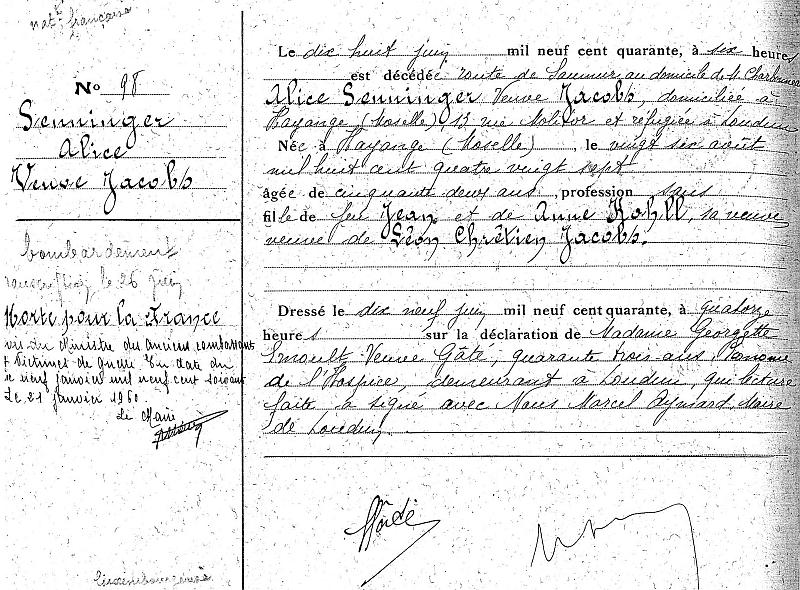 nat. française
No 98
Senninger
Alice
Veuve Jacobs
bombardement
le 26 juin
Morte pour la France
du Ministre des Anciens combattants
Victimes de guerre En date du
neuf janvier mil neuf cent soixante
Le 21 janvier 1960.
Le Maire
Luxembourgeoise
Le dix huit juin mil neuf cent quarante, à six heures
est décédée route de Saumur au domicile de M. Charbonnier
Alice Senninger Veuve Jacobs, domiciliée à
Hayange (Moselle) 13 rue Molitor et réfugiée à Loudun
Née à Hayange (Moselle), le vingt six août
mil huit cent quatre vingt sept
âgée de cinquante deux ans, profession sans
fille de feu Jean et de Anne Kohll, sa veuve,
veuve de Léon Chrétien Jacobs.
Dressé le dix neuf juin mil neuf cent quarante, à quatorze
heures sur la déclaration de Madame Georgette
Veuve Gâté, quarante trois ans, Econome
de l'Hospice, demeurant à Loudun, qui lecture
faite, a signé avec Nous Marcel Aymard, Maire
de Loudun.